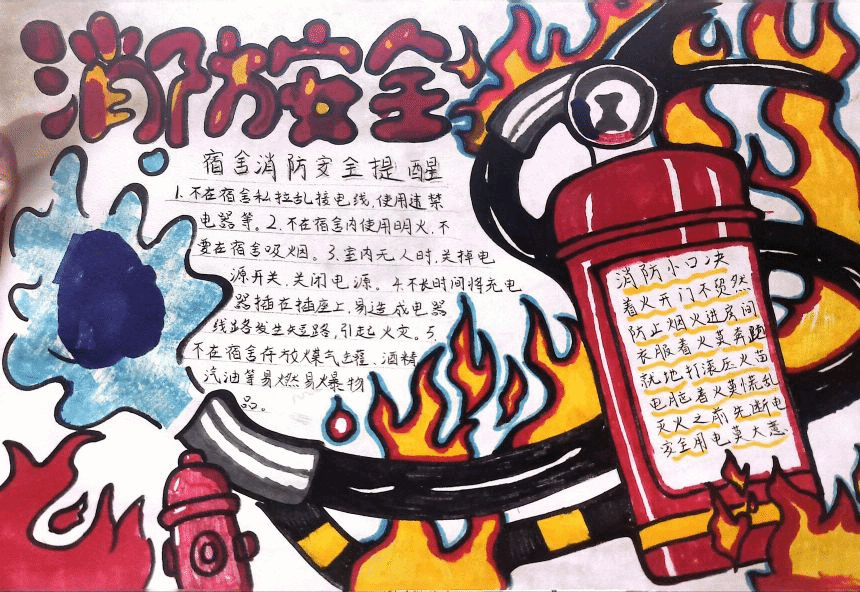 消防安全
宿舍消防安全提醒
1.不在宿舍私拉乱接电线,使用违禁
电器等。2.不在宿舍内使用明火,不
要在宿舍吸烟。3.室内无人时,关掉电
源开关,关闭电源。4.不长时间将充电
器插在插座上,易造成电器
线路发生短路,引起火灾。5.
不在宿舍存放煤气罐、酒精
汽油等易燃易爆物
品。
消防小口决
着火开门不贸然
防止烟火进房间
衣服着火莫奔跑
就地打滚压火苗
电脑着火莫慌乱
灭火之前先断电
安全用电莫大意